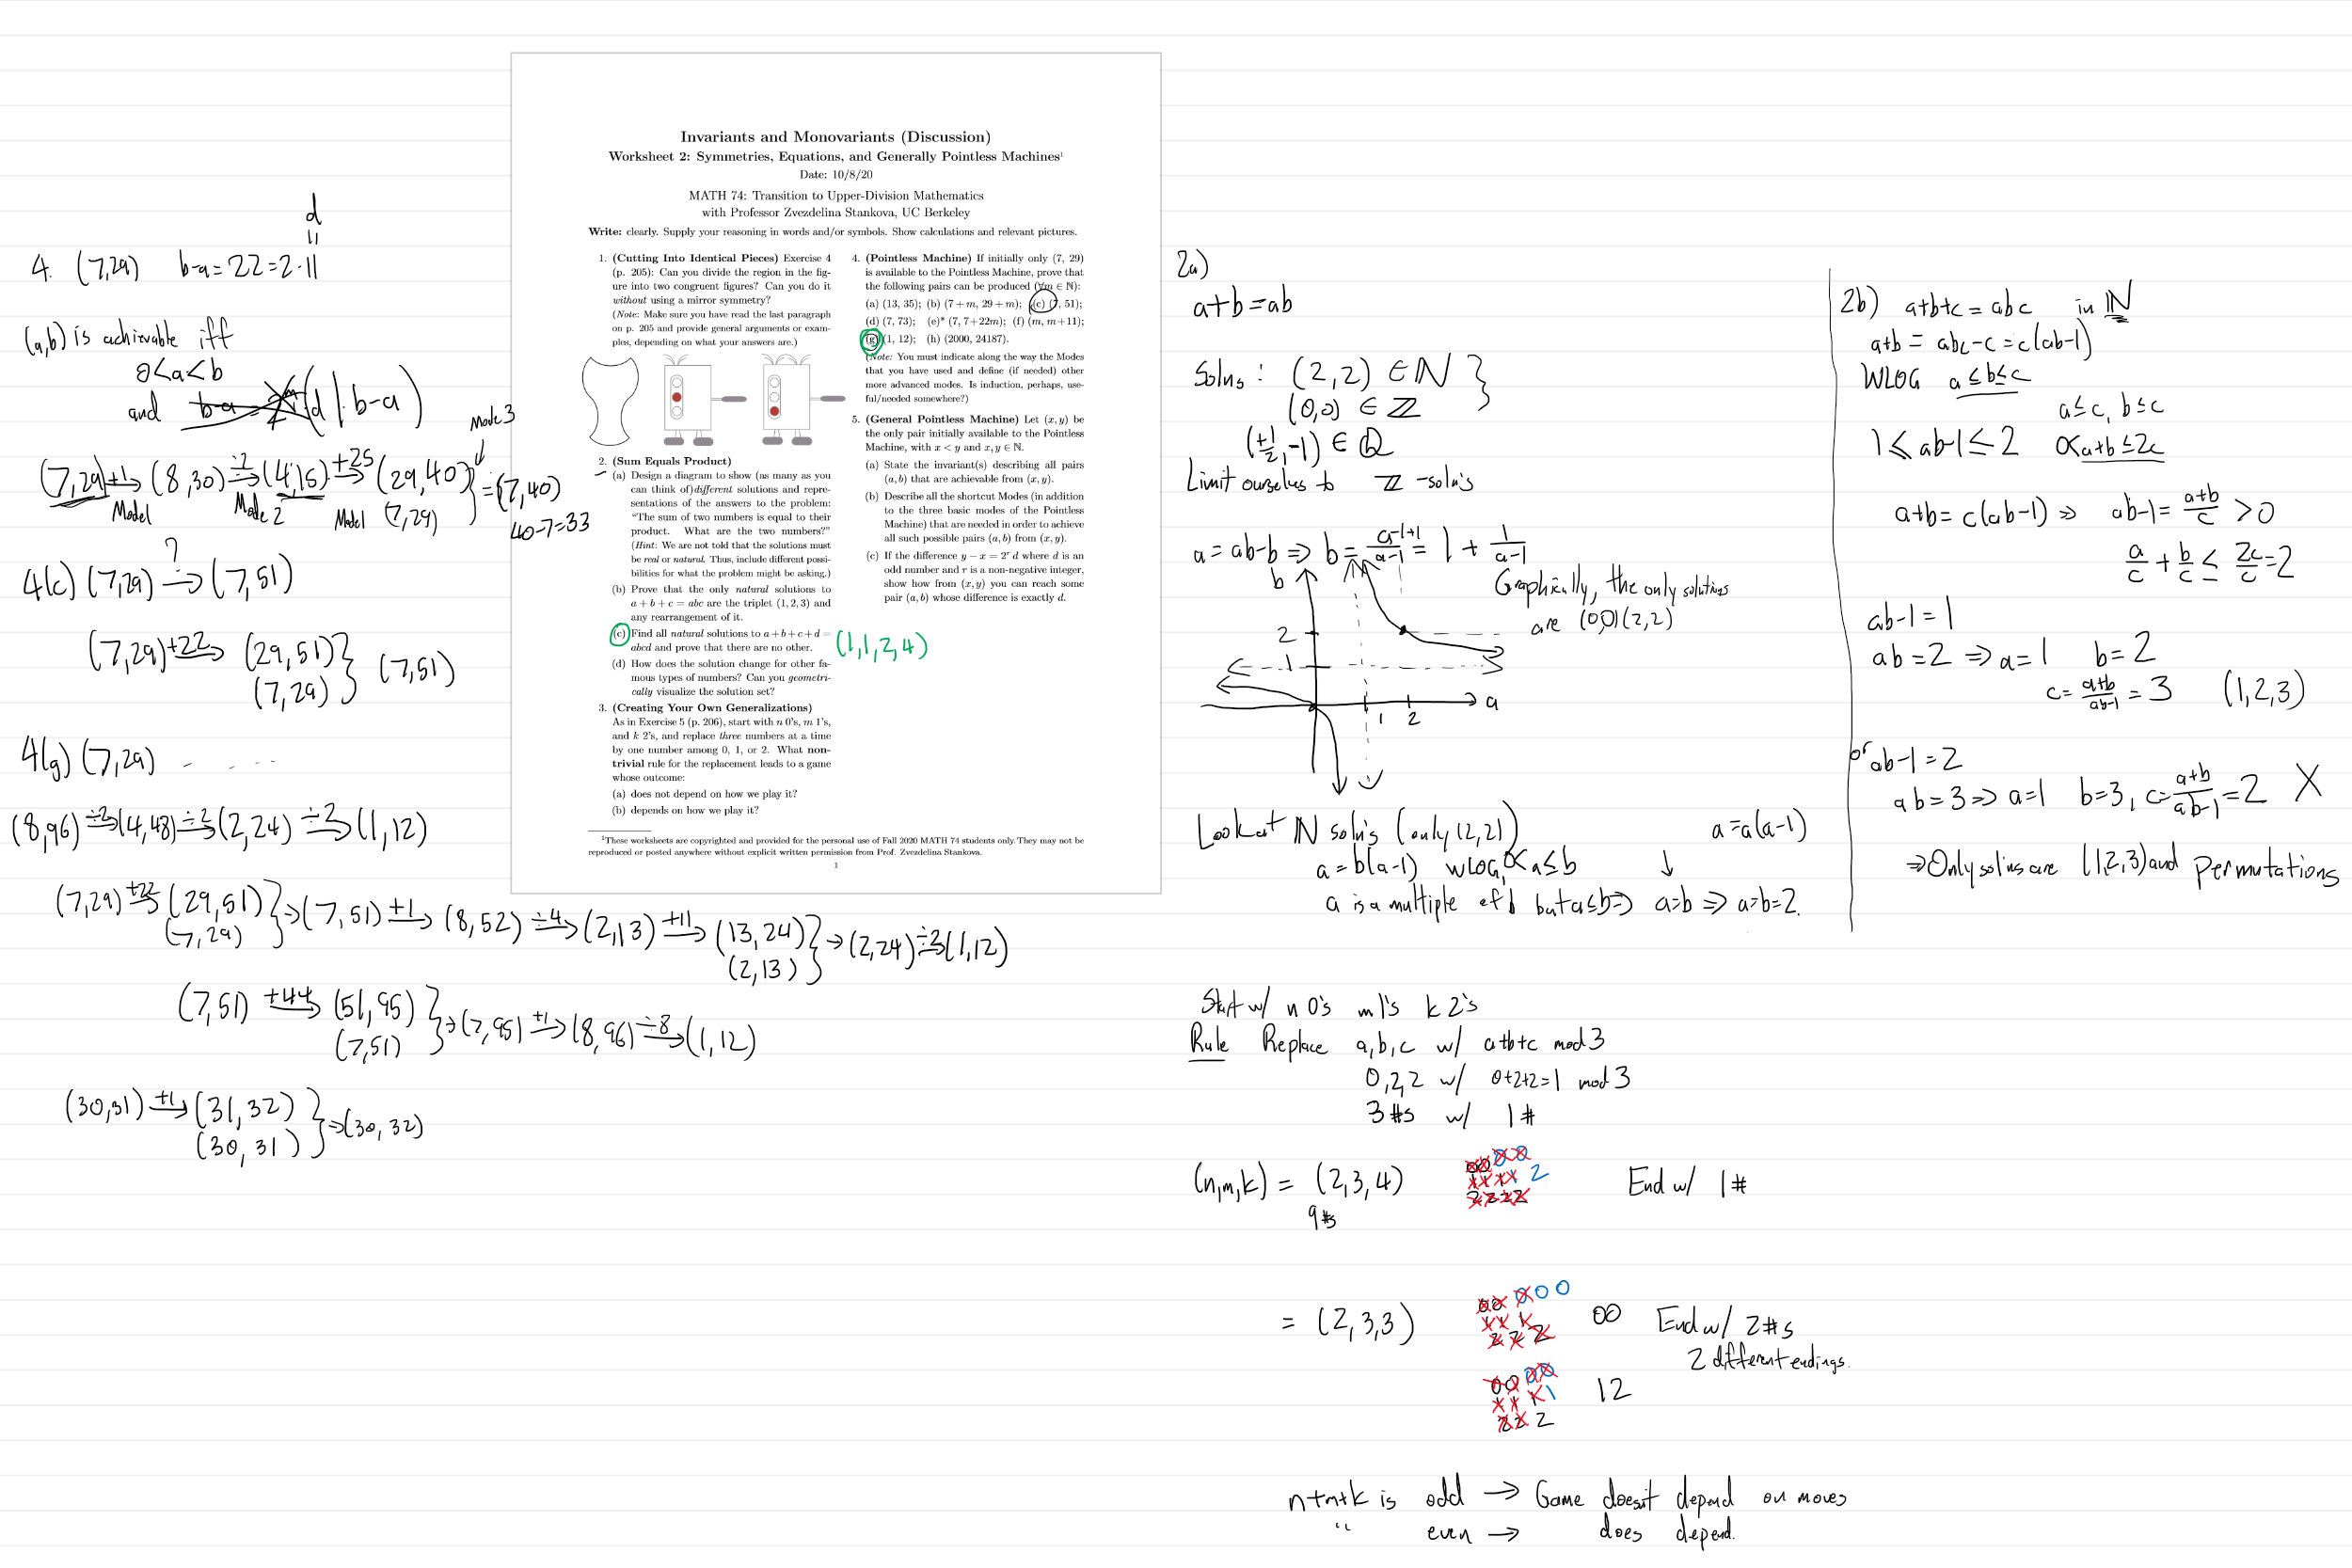 d
||
4. (7,29) b-a=22=2·11
(a,b) is achievable iff
0<a<b
and (d | b-a)
Mode 3
(7,29) +1→ (8,30) ÷2→ (4,15) +25→ (29,40) } = (7,40)
Mode1 Mode 2 Mode1 (7,29)
40-7=33
?
4(c) (7,29) → (7,51)
(7,29) +22→ (29,51) } (7,51)
(7,29)
4(g) (7,29) - - ...
(8,96) ÷2→ (4,48) ÷2→ (2,24) ÷2→ (1,12)
(7,29) +22→ (29,51) } → (7,51) +1→ (8,52) ÷4→ (2,13) +11→ (13,24) } → (2,24) ÷2→ (1,12)
(7,29) (2,13)
(7,51) +44→ (51,95) } → (7,95) +1→ (8,96) ÷8→ (1,12)
(7,51)
(30,31) +1→ (31,32) } ⇒ (30,32)
(30,31)
Invariants and Monovariants (Discussion)
Worksheet 2: Symmetries, Equations, and Generally Pointless Machines¹
Date: 10/8/20
MATH 74: Transition to Upper-Division Mathematics
with Professor Zvezdelina Stankova, UC Berkeley
Write: clearly. Supply your reasoning in words and/or symbols. Show calculations and relevant pictures.
1. (Cutting Into Identical Pieces) Exercise 4
(p. 205): Can you divide the region in the fig-
ure into two congruent figures? Can you do it
without using a mirror symmetry?
(Note: Make sure you have read the last paragraph
on p. 205 and provide general arguments or exam-
ples, depending on what your answers are.)
2. (Sum Equals Product)
(a) Design a diagram to show (as many as you
can think of) different solutions and repre-
sentations of the answers to the problem:
“The sum of two numbers is equal to their
product. What are the two numbers?”
(Hint: We are not told that the solutions must
be real or natural. Thus, include different possi-
bilities for what the problem might be asking.)
(b) Prove that the only natural solutions to
a + b + c = abc are the triplet (1, 2, 3) and
any rearrangement of it.
(c) Find all natural solutions to a + b + c + d =
abcd and prove that there are no other.
(1,1,2,4)
(d) How does the solution change for other fa-
mous types of numbers? Can you geometri-
cally visualize the solution set?
3. (Creating Your Own Generalizations)
As in Exercise 5 (p. 206), start with n 0's, m 1's,
and k 2's, and replace three numbers at a time
by one number among 0, 1, or 2. What non-
trivial rule for the replacement leads to a game
whose outcome:
(a) does not depend on how we play it?
(b) depends on how we play it?
4. (Pointless Machine) If initially only (7, 29)
is available to the Pointless Machine, prove that
the following pairs can be produced (∀m ∈ ℕ):
(a) (13, 35); (b) (7 + m, 29 + m); (c) (7, 51);
(d) (7, 73); (e)* (7, 7+22m); (f) (m, m+11);
(g) (1, 12); (h) (2000, 24187).
(Note: You must indicate along the way the Modes
that you have used and define (if needed) other
more advanced modes. Is induction, perhaps, use-
ful/needed somewhere?)
5. (General Pointless Machine) Let (x, y) be
the only pair initially available to the Pointless
Machine, with x < y and x, y ∈ ℕ.
(a) State the invariant(s) describing all pairs
(a, b) that are achievable from (x, y).
(b) Describe all the shortcut Modes (in addition
to the three basic modes of the Pointless
Machine) that are needed in order to achieve
all such possible pairs (a, b) from (x, y).
(c) If the difference y − x = 2ʳd where d is an
odd number and r is a non-negative integer,
show how from (x, y) you can reach some
pair (a, b) whose difference is exactly d.
¹These worksheets are copyrighted and provided for the personal use of Fall 2020 MATH 74 students only. They may not be
reproduced or posted anywhere without explicit written permission from Prof. Zvezdelina Stankova.
1
2a)
a+b=ab
Solns: (2,2) ∈ ℕ }
(0,0) ∈ ℤ
(+1/2,-1) ∈ ℚ
Limit ourselves to ℤ-soln's
a=ab-b ⇒ b= a-1+1/a-1 = 1 + 1/a-1
b
Graphically, the only solutions
are (0,0) (2,2)
2
1
a
1 2
Look at ℕ soln's (only (2,2)) a=a(a-1)
a=b(a-1) WLOG, 0<a≤b ↓
a is a multiple of b but a≤b ⇒ a=b ⇒ a=b=2.
2b) a+b+c=abc in ℕ
a+b = abc-c = c(ab-1)
WLOG a≤b≤c
a≤c, b≤c
1≤ab-1≤2 0<a+b≤2c
a+b=c(ab-1) ⇒ ab-1= a+b/c >0
a/c + b/c ≤ 2c/c =2
ab-1=1
ab=2 ⇒ a=1 b=2
c= a+b/ab-1 =3 (1,2,3)
or ab-1=2
ab=3 ⇒ a=1 b=3, c= a+b/ab-1 =2 X
⇒ Only solns are (1,2,3) and permutations
Start w/ n 0's m 1's k 2's
Rule Replace a,b,c w/ a+b+c mod 3
0,2,2 w/ 0+2+2=1 mod 3
3 #s w/ 1 #
(n,m,k) = (2,3,4) End w/ 1 #
9 #s
= (2,3,3) 00 End w/ 2 #s
2 different endings.
12
n+m+k is odd → Game doesn't depend on moves
" even → does depend.